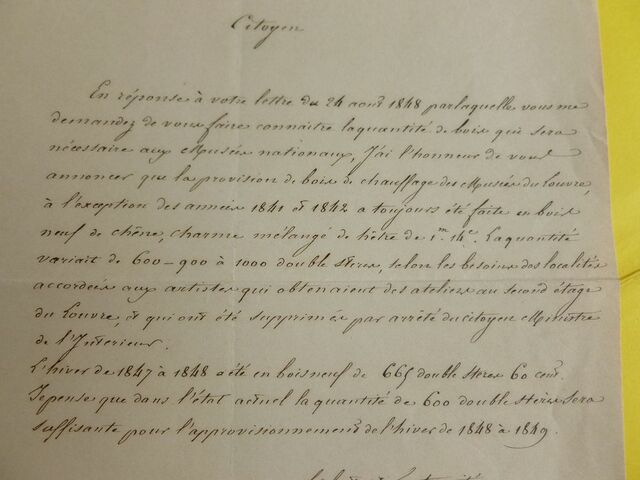 Citoyen
En réponse à votre lettre du 24 aout 1848 par laquelle vous me
demandez de vous faire connaitre la quantité de bois qui sera
nécessaire aux Musées nationaux, J'ai l'honneur de vous
annoncer que la provision de bois de chauffage des Musées du Louvre,
à l'exception des années 1841 et 1842 a toujours été faite en bois
neuf de chêne, charme mélangé de hêtre de 1.m 14.c La quantité
variait de 600 - 900 à 1000 double stères, selon les besoins des localités
accordées aux artistes qui obtenaient des ateliers au second étage
du Louvre, et qui ont été supprimés par arrêté du citoyen Ministre
de l'Intérieur.
L'hiver de 1847 à 1848 a été en bois neuf de 665 double stères 60 cent.
Je pense que dans l'état actuel la quantité de 600 double stères sera
suffisante pour l'approvisionnement de l'hiver de 1848 à 1849.